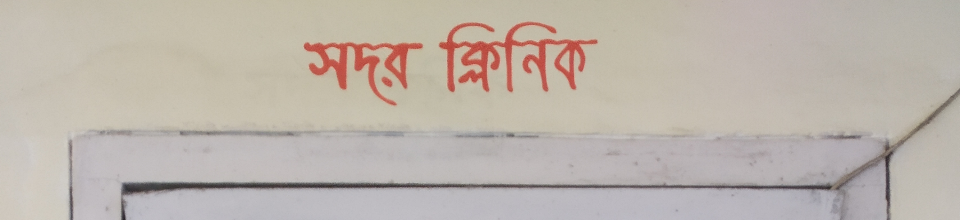 সদর ক্লিনিক